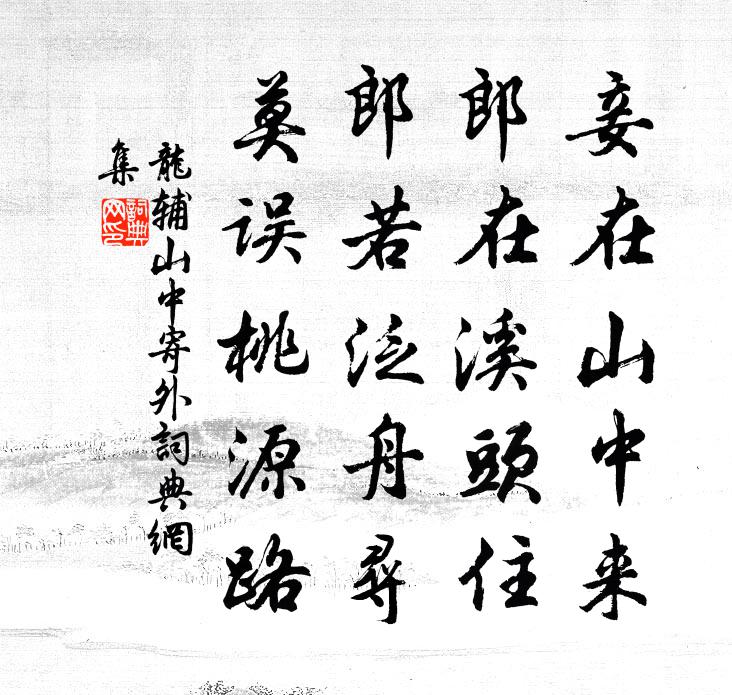 妾在山中来
郎在溪頭住
郎若泛舟尋
莫误桃源路
龍辅山中寄外詞典網
集
詞典
网印